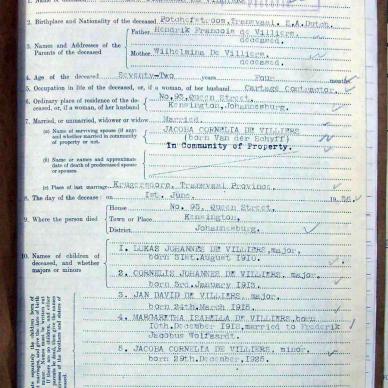 2. Birthplace and Nationality of the deceased Potchefstroom, Transvaal. S.A. Dutch.
3. Names and Addresses of the Parents of the deceased
Father Hendrik Francois de Villiers,
deceased.
Mother Wilhelmina De Villiers,
deceased.
4. Age of the deceased Seventy-Two years Four months
5. Occupation in life of the deceased, or, if a woman, of her husband Cartage Contractor.
6. Ordinary place of residence of the deceased, or, if a woman, of her husband No. 95, Queen Street,
Kensington, Johannesburg.
7. Married, or unmarried, widower or widow Married.
(a) Name of surviving spouse (if any) and whether married in community of property or not.
JACOBA CORNELIA DE VILLIERS
(born Van der Schyff)
In Community of Property.
(b) Name or names and approximate date of death of predeceased spouse or spouses
(c) Place of last marriage Krugersdorp, Transvaal Province.
8. The day of the deceased on 1st. June, 19
9. Where the person died
House No. 95, Queen Street,
Town or Place Kensington,
District Johannesburg.
10. Names of children of deceased, and whether majors or minors
1. LUKAS JOHANNES DE VILLIERS, major,
born 31st. August 1910.
2. CORNELIS JOHANNES DE VILLIERS, major,
born 3rd. January 1913.
3. JAN DAVID DE VILLIERS, major,
born 24th. March 1915.
4. MARGARETHA ISABELLA DE VILLIERS, born
10th. December 1918, married to Frederik
Jacobus Wolfaardt.
5. JACOBA CORNELIA DE VILLIERS, minor,
born 29th. December 1925.